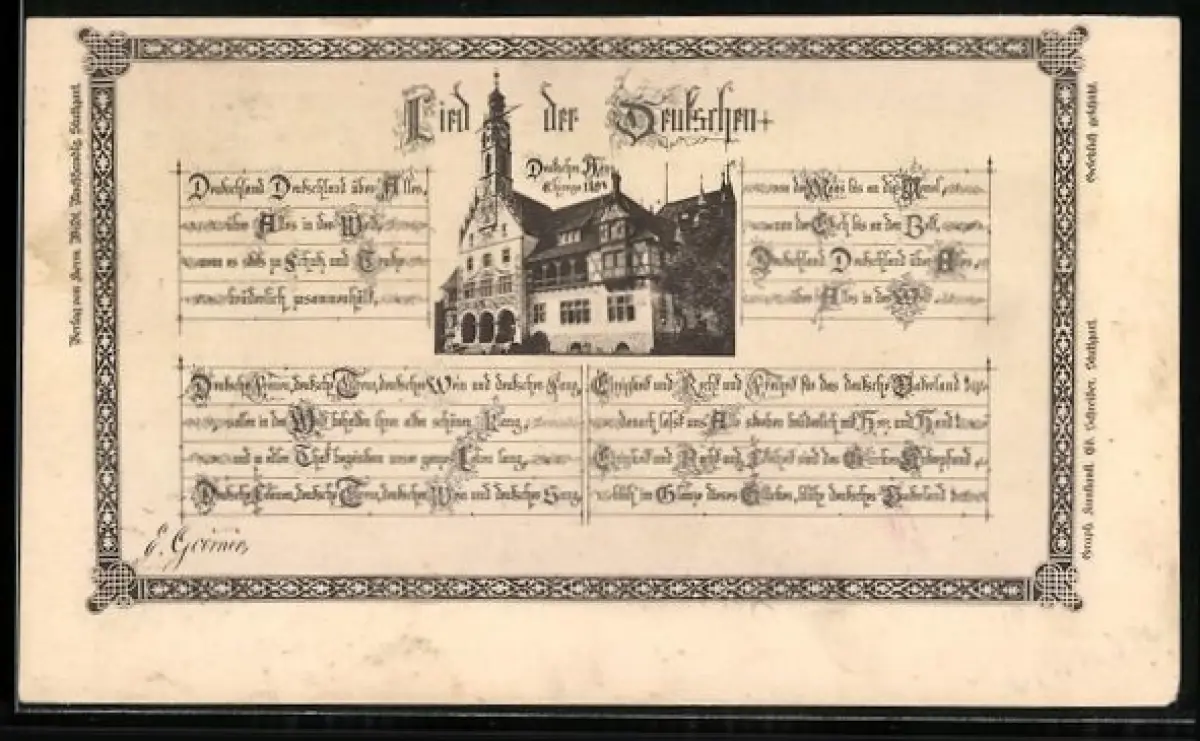 Lied der Deutschen
Deutsches Haus
Chicago 1893
Deutschland Deutschland über Alles,
über Alles in der Welt,
wenn es stets zu Schutz und Trutze
brüderlich zusammenhält,
von der Maas bis an die Memel,
von der Etsch bis an den Belt,
Deutschland Deutschland über Alles,
über Alles in der Welt
Deutsche Frauen, deutsche Treue, deutscher Wein und deutscher Sang,
sollen in der Welt behalten ihren alten schönen Klang,
und zu edler That begeistern unser ganzes Leben lang,
Deutsche Frauen, deutsche Treue, deutscher Wein und deutscher Sang
Einigkeit und Recht und Freiheit für das deutsche Vaterland
danach lasst uns Alle streben brüderlich mit Herz und Hand
Einigkeit und Recht und Freiheit sind des Glückes Unterpfand
blüh' im Glanze dieses Glückes, blühe deutsches Vaterland
Verlag von Herm. Wildt, Buchhandlg. Stuttgart.
Gesetzlich geschützt.
Graph. Kunstanst. Eb. Schreiber, Stuttgart.